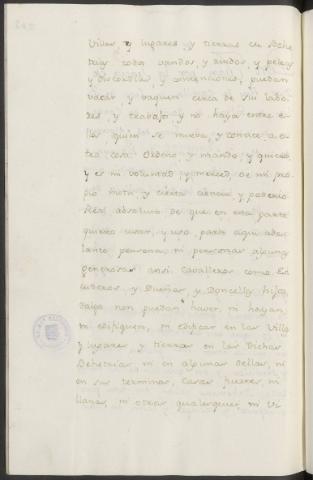 Villas y lugares y tierras de Behe
trias todos vandos, y ruidos, y peleas
y discordias y contenciones, puedan
vacar, y vaquen cerca de sus labo-
res, y trabajo, y no haya entre e-
llos quien se mueba, y conrace a o-
tra cosa. Ordeno, y mando, y quiero,
y es mi voluntad, y merced, de mi pro-
pio motu, y cierta ciencia, y poderio
Real absoluto de que en esta parte
quiero usar, y uso, para aqui ade-
lante persona, ni personas algunas
generosas ansi cavalleros como Es
cuderos, y Dueñas, y Doncellas hijos
dalgo non puedan haver, ni hayan,
ni edifiquen, ni edificar en las Villas
y lugares, y tierras en las dichas
Behetrias, ni en algunas dellas, ni
en sus terminos, Casas fuertes, ni
llanas, ni otras qualesquier ni vi